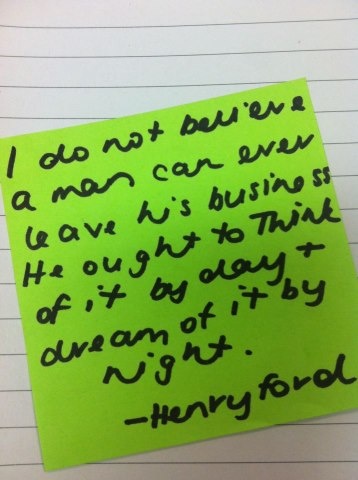 I do not believe
a man can ever
leave his business
He ought to Think
of it by day +
dream of it by
night.
-Henry Ford